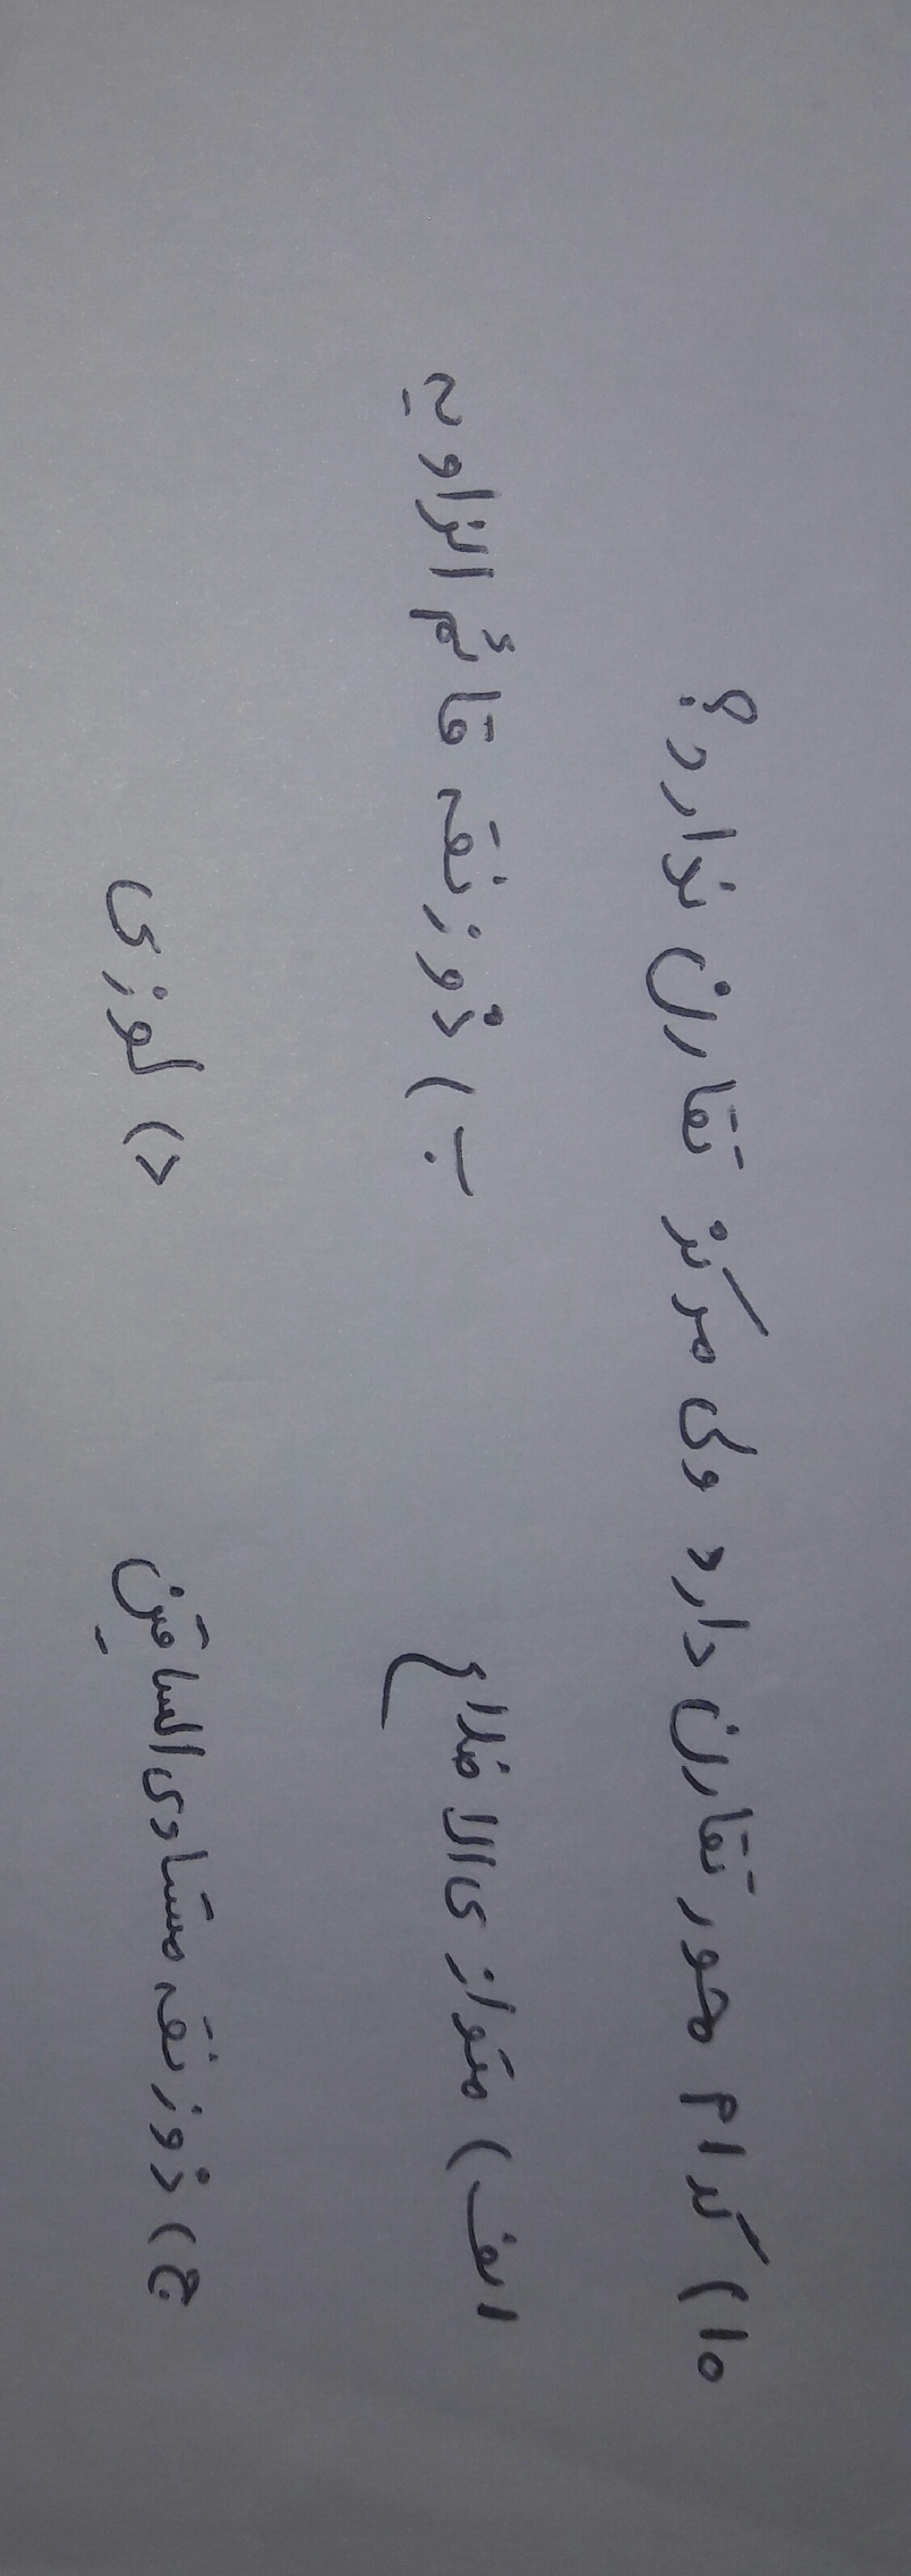 ۱۰) کدام محور تقارن دارد ولی مرکز تقارن ندارد؟
الف) متوازی الاضلاع ب) ذوزنقه قائم الزاویه
ج) ذوزنقه متساوی الساقین د) لوزی